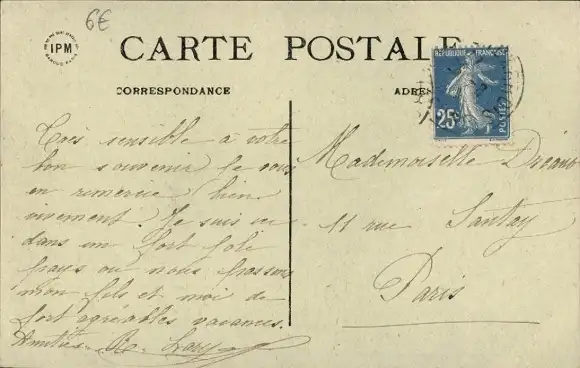 6€
IPM
CARTE POSTALE
CORRESPONDANCE
ADRE
REPUBLIQUE FRANÇAISE
25c
POSTES
Très sensible à votre
bon souvenir je vous
en remercie bien
vivement. Je suis ici
dans un fort joli
pays où nous passons
mon fils et moi de
fort agréables vacances.
Amitiés
Mademoiselle
11 rue Santay
Paris